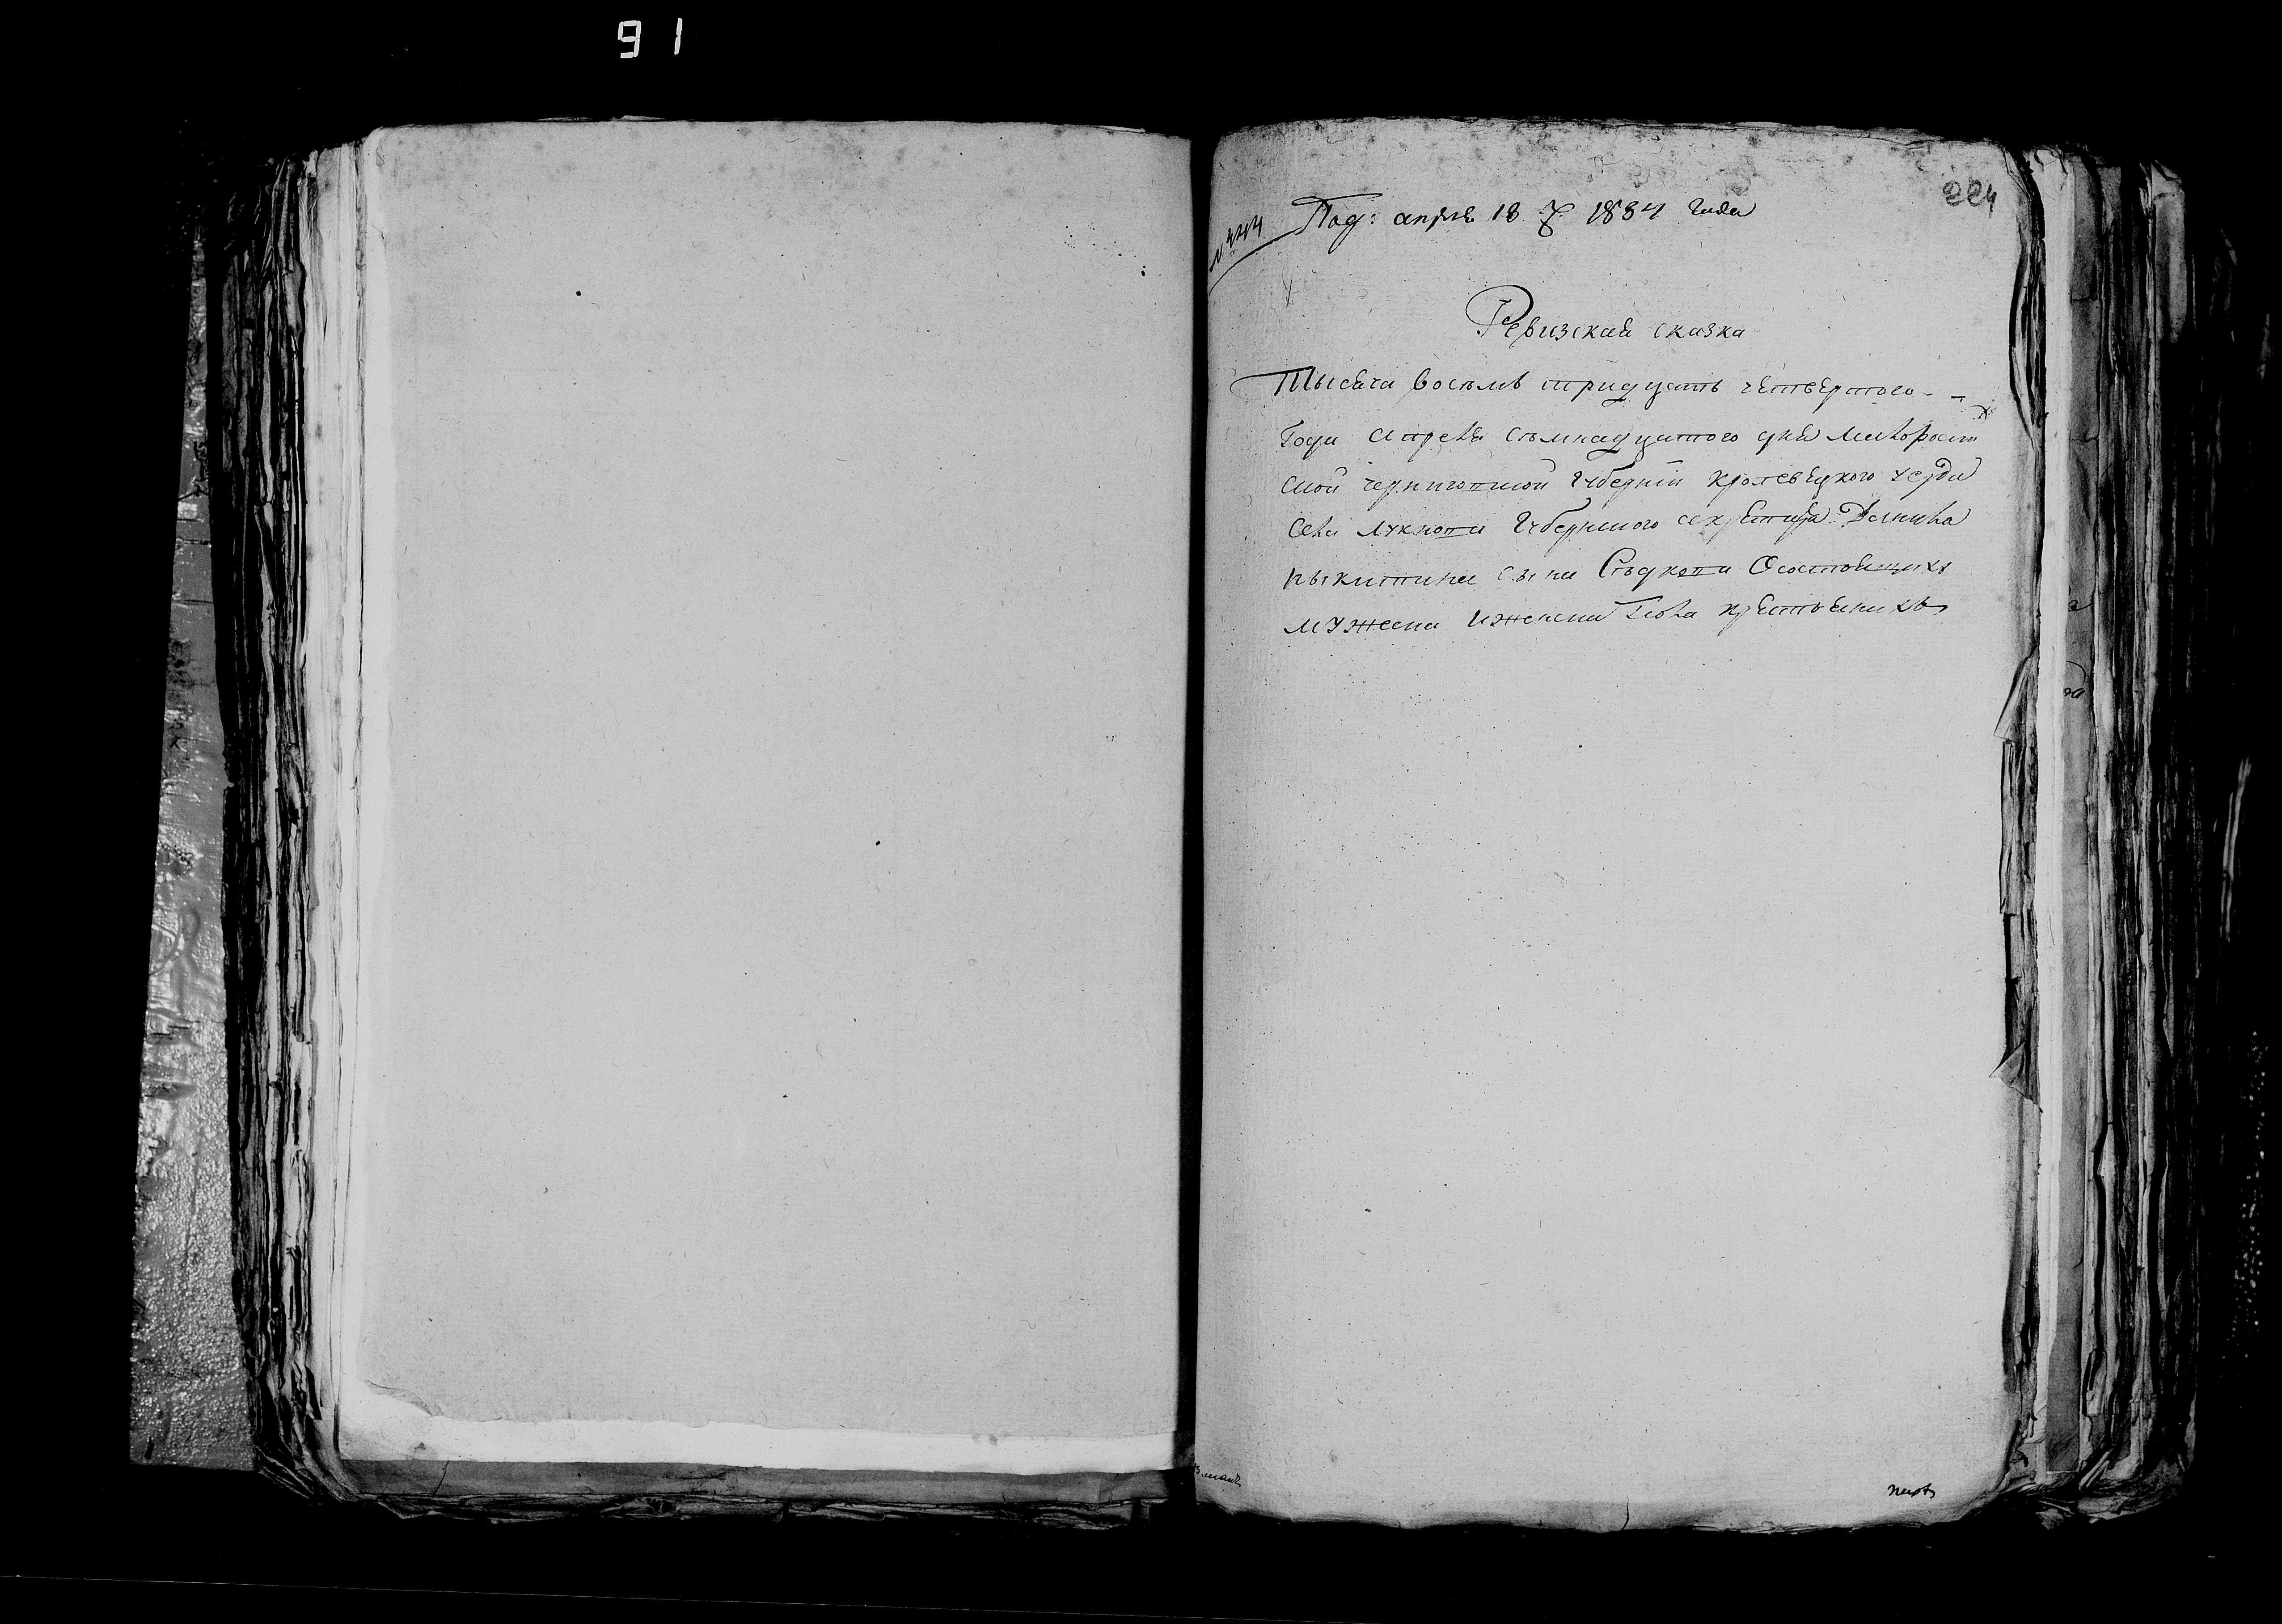 91
224
№ 444 Под: апреля 18 1834 года
Ревизская сказка
Тысяча восемь тридцать четвертого
Года апреля семнадцатого дня Малорос
ской черниговской Губернии Кролевецкого уезда
Села Лукнова Губернского секретара Данила
Никитина сына Своѣ состоящихъ
мужеска и женска Пола крестьянихъ